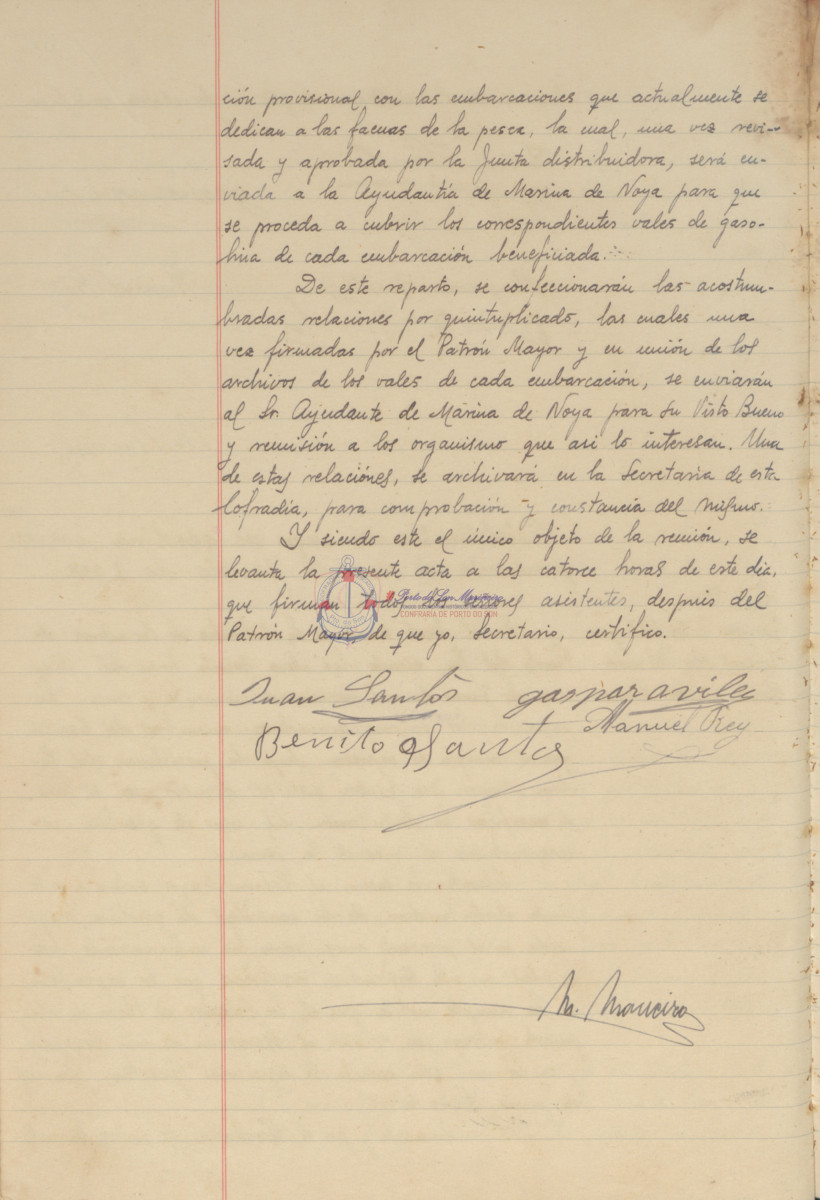 ción provisional con las embarcaciones que actualmente se
dedican a las faenas de la pesca, la cual, una vez revi-
sada y aprobada por la Junta distribuidora, será en-
viada a la Ayudantía de Marina de Noya para que
se proceda a cubrir los correspondientes vales de gaso-
lina de cada embarcación beneficiada.
De este reparto, se confeccionarán las acostum-
bradas relaciones por quintuplicado, las cuales una
vez firmadas por el Patrón Mayor y en unión de los
archivos de los vales de cada embarcación, se enviarán
al Sr. Ayudante de Marina de Noya para su Visto Bueno
y remisión a los organismo que asi lo interesan. Una
de estas relaciónes, se archivará en la Secretaria de esta
Cofradia, para comprobación y constancia del mismo.
Y siendo este el único objeto de la reunión, se
levanta la presente acta a las catorce horas de este dia,
que firman todos los señores asistentes, después del
Patrón Mayor, de que yo, Secretario, certifico.
CONFRARIA DE PORTO DO SON
Juan Santos gaspar aviles
Manuel Rey
Benito Santos
M. Maneiro